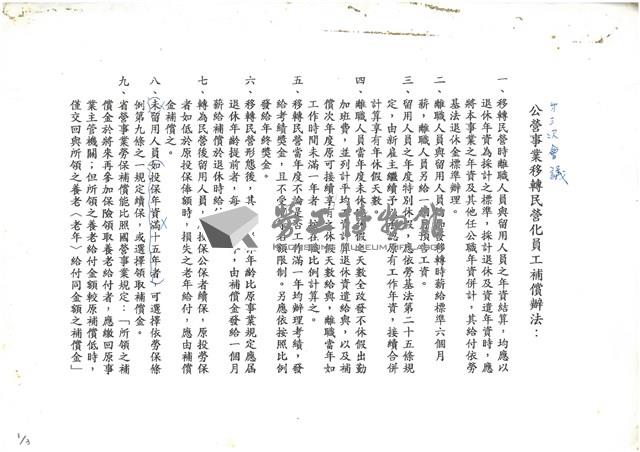 第三次會議
公營事業移轉民營化員工補償辦法：
一、移轉民營時離職人員與留用人員之年資結算，均應以
退休年資為採計之標準，採計退休及資遣年資時，應
將本事業之年資及其他任公職年資併計，其給付依勞
基法退休金標準辦理。
二、離職人員與留用人員 發移轉時薪給標準六個月
薪，離職人員另給一個月預告工資。
三、留用人員之年度特別休假，應依勞基法第二十五條規
定，由新雇主繼續予以承認原有工作年資，接續合併
計算享有年休假天數。
四、離職人員當年度未休 假之天數全改發不休假出勤
加班費，並列計平均 計算退休資遣給與，以及補
償次年度原可接續享有之休假天數給與，離職當年如
工作時間未滿一年者 按在職比例計算之。
五、移轉民營當年度不論是否工作滿一年均辦理考績，發
給考績獎金，且不受 名額限制。另應依按照比例
發給年終獎金。
六、移轉民營形態後，其 年齡比原事業規定應屆
退休年齡提前者，每 ，由補償金發給一個月
薪給補償於退休時給
七、轉為民營後留用人員， 投保公保者續保，原投勞保
者如低於原投保俸額時，損失之老年給付，應由補償
金補償之。
八、未留用人員如投保年資滿十五年者，可選擇依勞保條
例第九條之一規定續保，或選擇領取補償金。
九、省營事業勞保補償能比照國營事業規定：「所領之補
償金於將來再參加保險領取養老給付者，應繳回原事
業主管機關；但所領之養老給付金額較原補償低時，
僅交回與所領之養老〈老年〉給付同金額之補償金」
1/3
勞工博物館